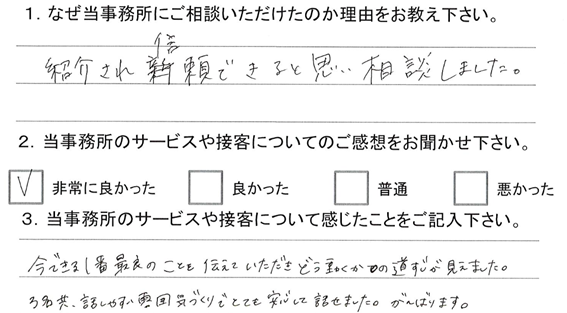 1. なぜ当事務所にご相談いただけたのか理由をお教え下さい。
信
紹介され 頼できると思い相談しました。
2. 当事務所のサービスや接客についてのご感想をお聞かせ下さい。
✓ 非常に良かった □ 良かった □ 普通 □ 悪かった
3. 当事務所のサービスや接客について感じたことをご記入下さい。
今できる1番最良のことを伝えていただきどう動くかの道すじが見えました。
3名共、話しやすい雰囲気づくりでとても安心して話せました。がんばります。